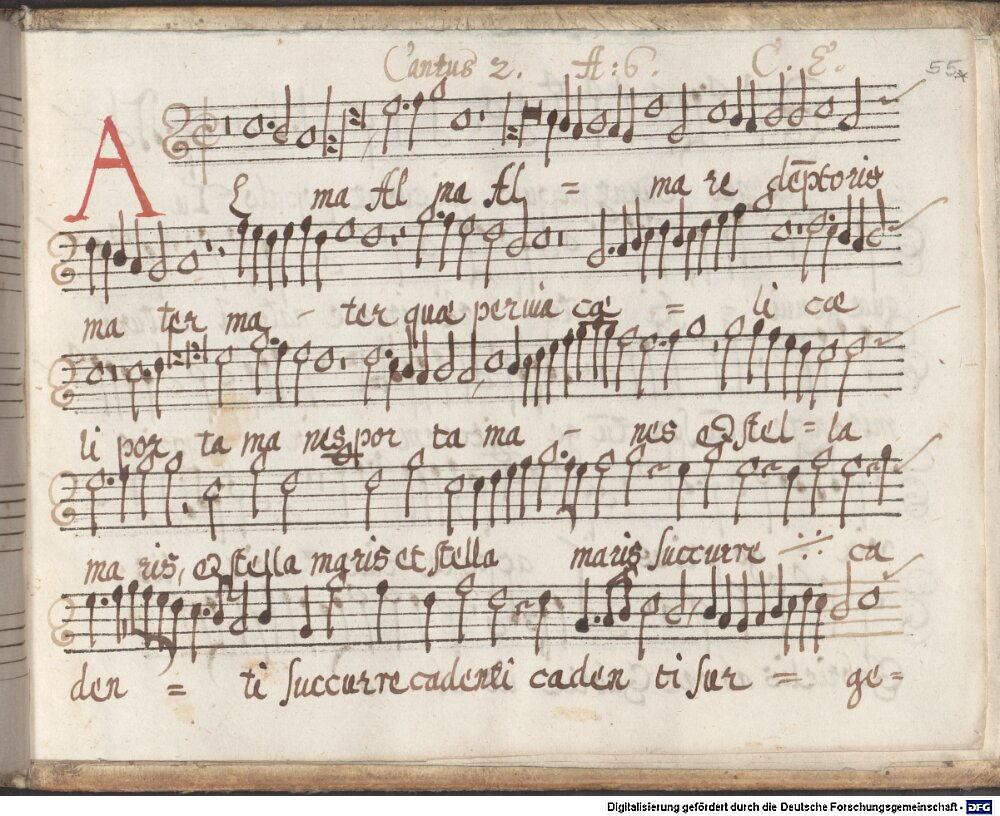 Cantus 2. A: 6. C. E. 55*
A
L ma Al ma Al = ma re dēptoris
ma ter ma - ter quæ peruia cæ = li cæ
li por ta ma nes por ta ma - nes & stel = la
ma ris, & stella maris et stella maris succurre ∴ ca
den = ti succurre cadenti caden ti sur = ge =
Digitalisierung gefördert durch die Deutsche Forschungsgemeinschaft - DFG